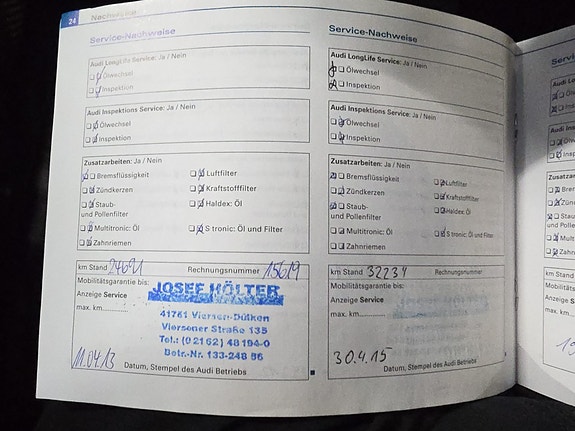 24 Nachweise
Service-Nachweise
Audi LongLife Service: Ja / Nein
Ölwechsel
Inspektion
Audi Inspektions Service: Ja / Nein
Ölwechsel
Inspektion
Zusatzarbeiten: Ja / Nein
Bremsflüssigkeit
Luftfilter
Zündkerzen
Kraftstofffilter
Staub-
und Pollenfilter
Haldex: Öl
Multitronic: Öl
S tronic: Öl und Filter
Zahnriemen
km Stand 24691 Rechnungsnummer 15619
Mobilitätsgarantie bis:
Anzeige Service
max. km............
JOSEF HÖLTER
41751 Viersen-Dülken
Viersener Straße 135
Tel.: (0 21 62) 4 81 94-0
Betr.-Nr. 133-248 96
11.04.13
Datum, Stempel des Audi Betriebs
Service-Nachweise
Audi LongLife Service: Ja / Nein
Ölwechsel
Inspektion
Audi Inspektions Service: Ja / Nein
Ölwechsel
Inspektion
Zusatzarbeiten: Ja / Nein
Bremsflüssigkeit
Luftfilter
Zündkerzen
Kraftstofffilter
Staub-
und Pollenfilter
Haldex: Öl
Multitronic: Öl
S tronic: Öl und Filter
Zahnriemen
km Stand 32234 Rechnungsnummer
Mobilitätsgarantie bis:
Anzeige Service
max. km............
30.4.15
Datum, Stempel des Audi Betriebs